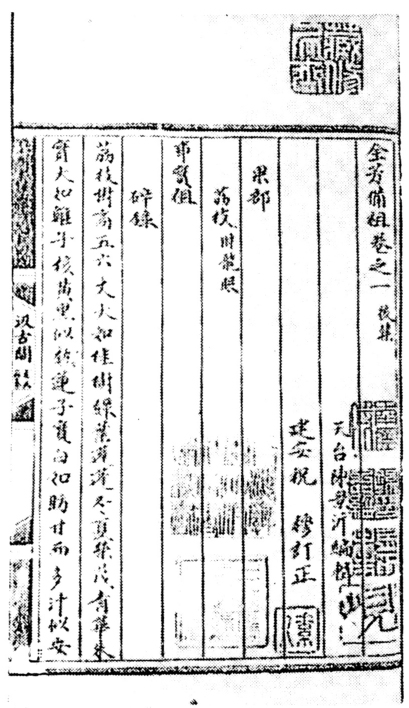 全芳備祖卷之一 後集
天台陳景沂編輯
建安祝 穆訂正
果部
荔枝 附龍眼
事實祖
碎錄
荔枝樹高五六丈大如桂樹綠葉蓬蓬冬夏榮茂青華朱
實大如雞子核黃黑似熟蓮子實白如肪甘而多汁似安
汲古閣